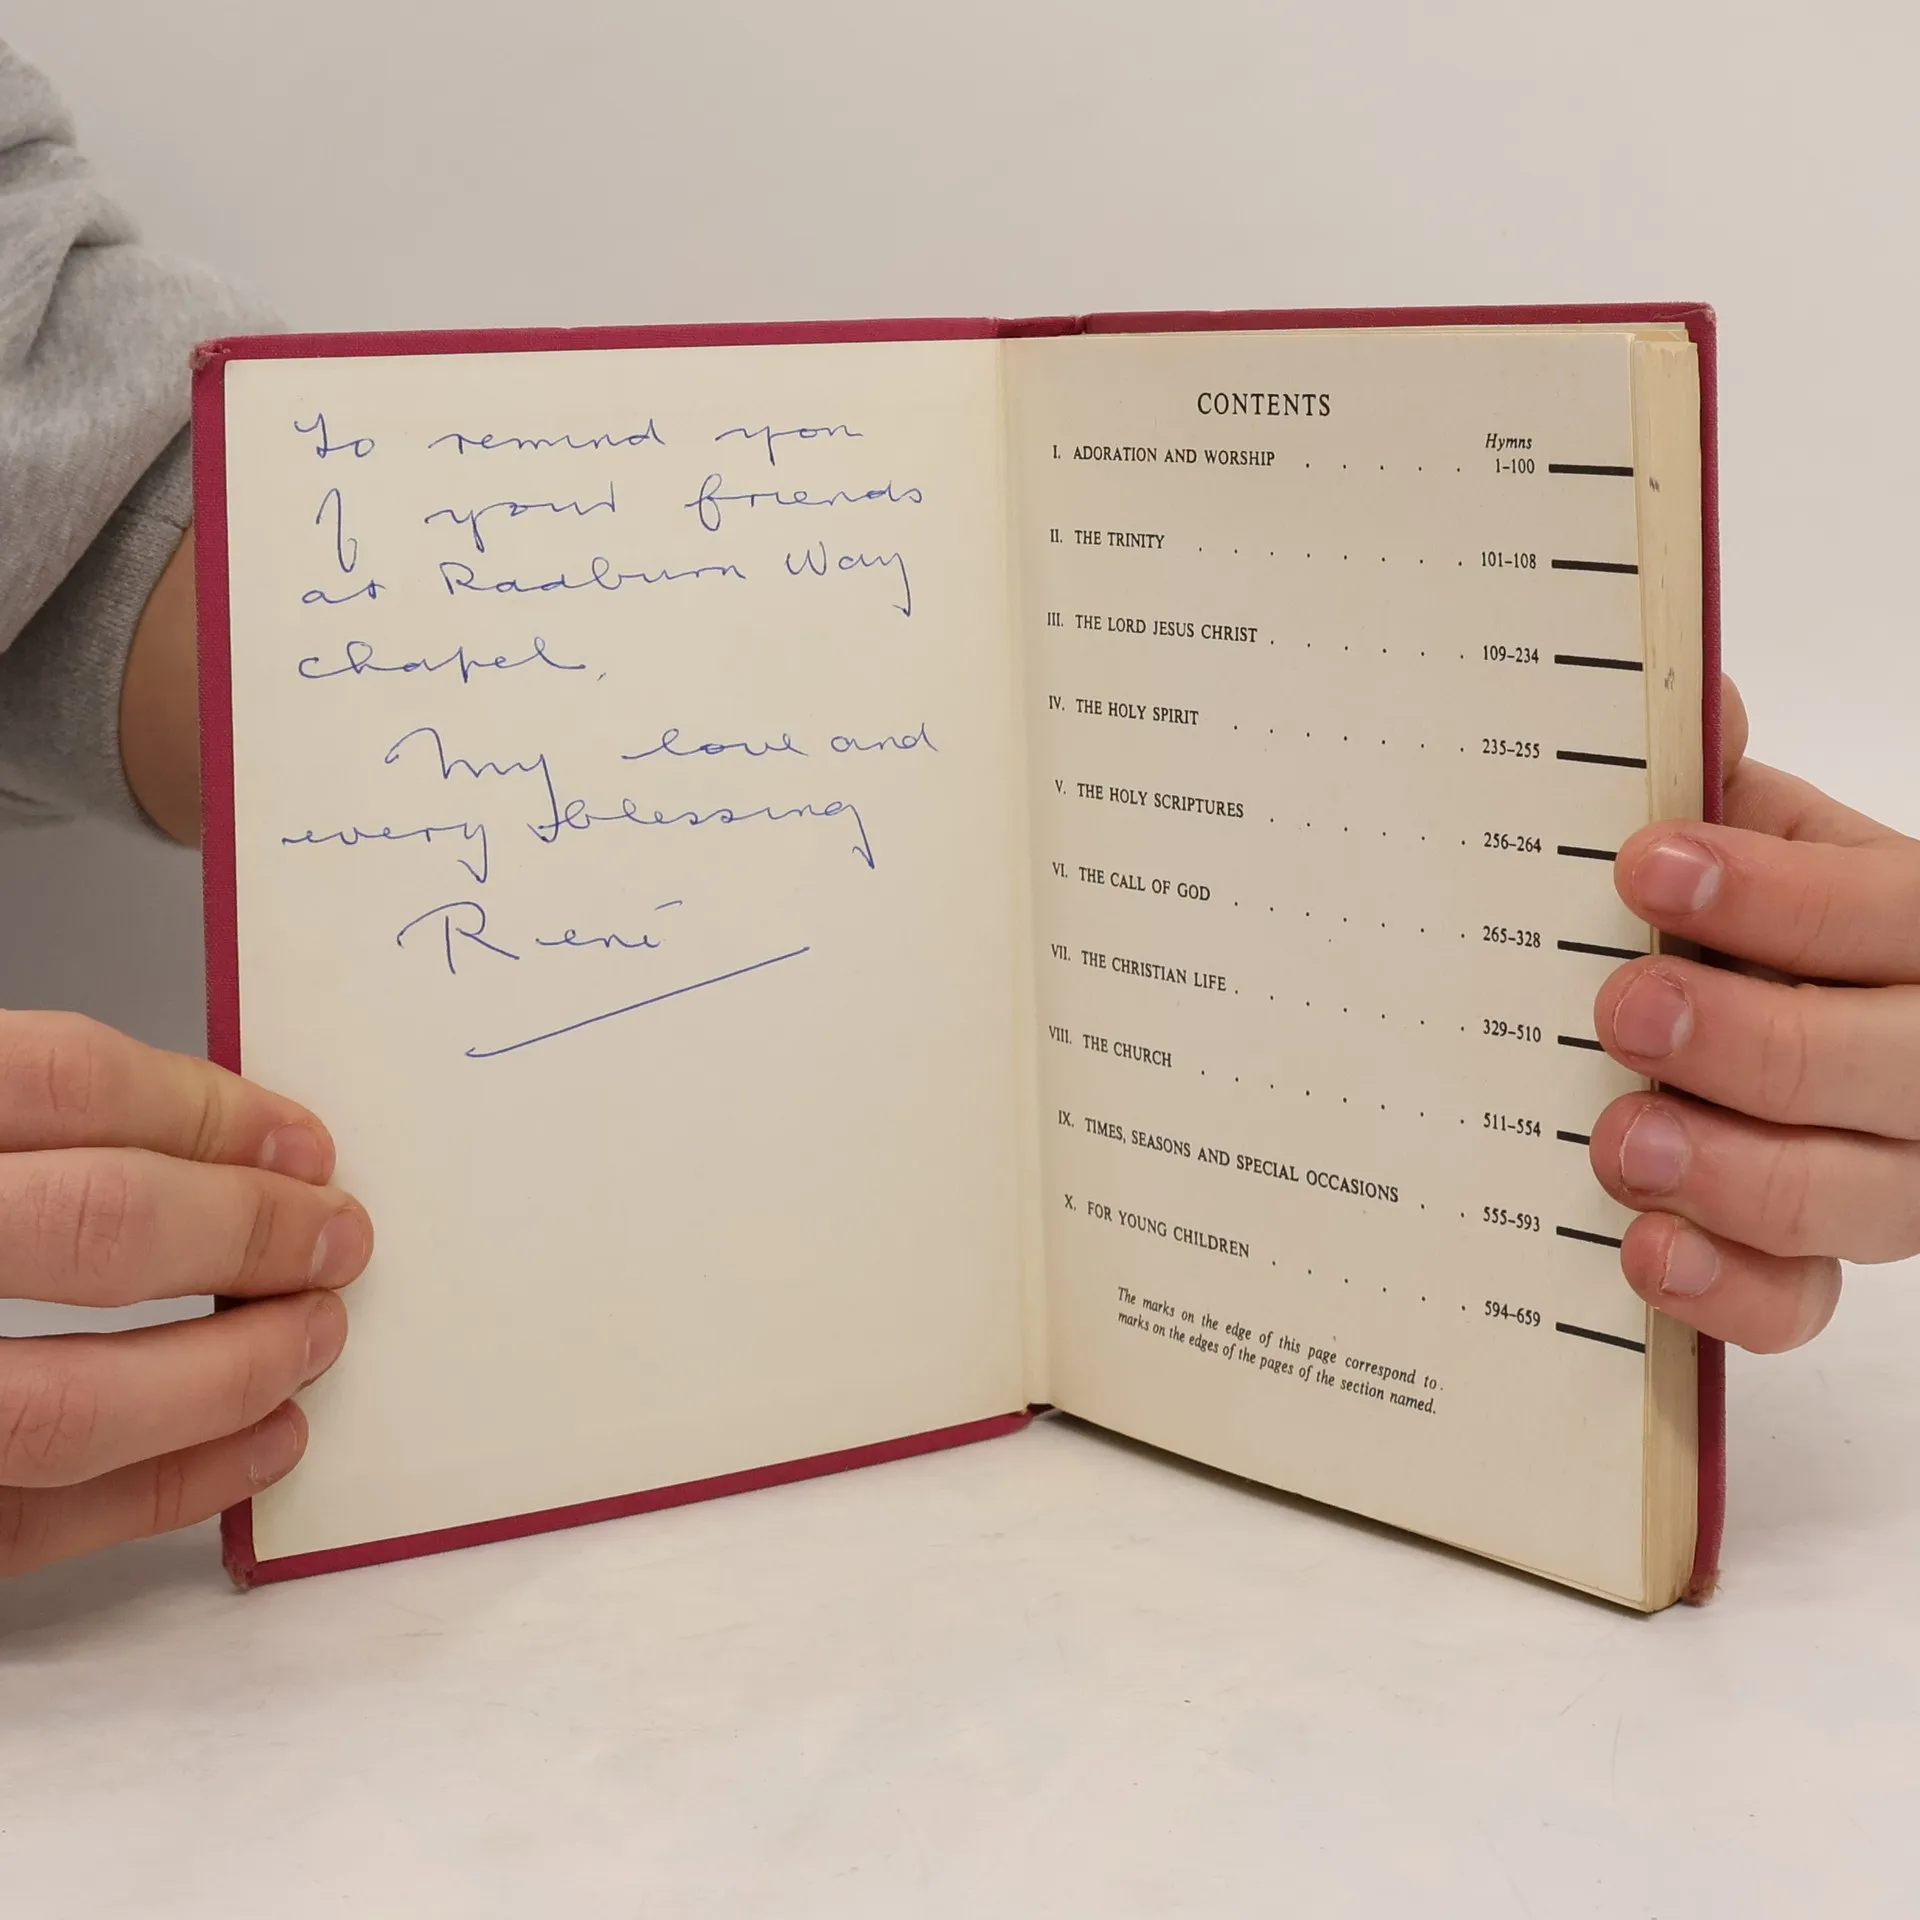 To remind you
of your friends
at Radburn Way
chapel.
My love and
every blessing
René
CONTENTS
Hymns
I. ADORATION AND WORSHIP . . . . . 1–100
II. THE TRINITY . . . . . . . . 101–108
III. THE LORD JESUS CHRIST . . . . . . 109–234
IV. THE HOLY SPIRIT . . . . . . . 235–255
V. THE HOLY SCRIPTURES . . . . . . 256–264
VI. THE CALL OF GOD . . . . . . . 265–328
VII. THE CHRISTIAN LIFE . . . . . . . 329–510
VIII. THE CHURCH . . . . . . . . 511–554
IX. TIMES, SEASONS AND SPECIAL OCCASIONS . . 555–593
X. FOR YOUNG CHILDREN . . . . . . 594–659
The marks on the edge of this page correspond to
marks on the edges of the pages of the section named.